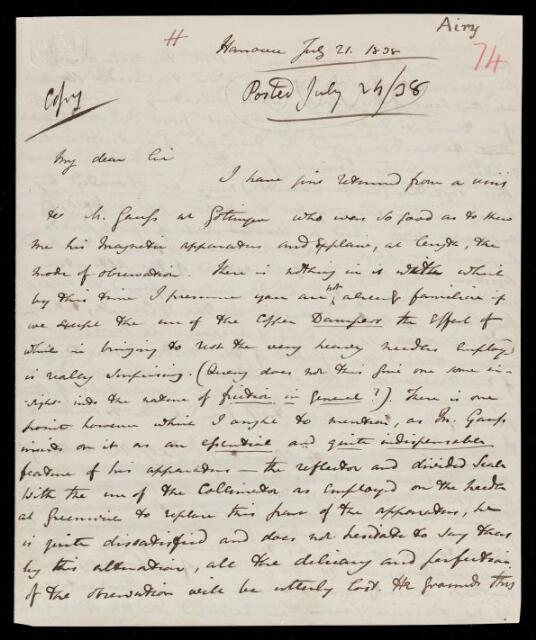 Airy
H
Hanover July 21. 1838
74
Posted July 24/38
Copy
My dear Sir
I have just returned from a visit
to M. Gauss at Göttingen who was so good as to shew
me his magnetic apparatus and explain, at length, the
mode of observation. There is nothing in it which
by this time I presume you are not already familiar if
we except the use of the Copper Dampers the effect of
which in bringing to rest the very heavy needles employed
is really surprising. (Query does not this give one some in-
-sight into the nature of friction in general?). There is one
point however which I ought to mention, as M. Gauss
insists on it as an essential and quite indispensable
feature of his apparatus — the reflector and divided Scale
With the use of the Collimator as employed on the needle
at Greenwich to replace this part of the apparatus, he
is quite dissatisfied and does not hesitate to say that
by this alteration, all the delicacy and perfection
of the observation will be utterly lost. He grounds this